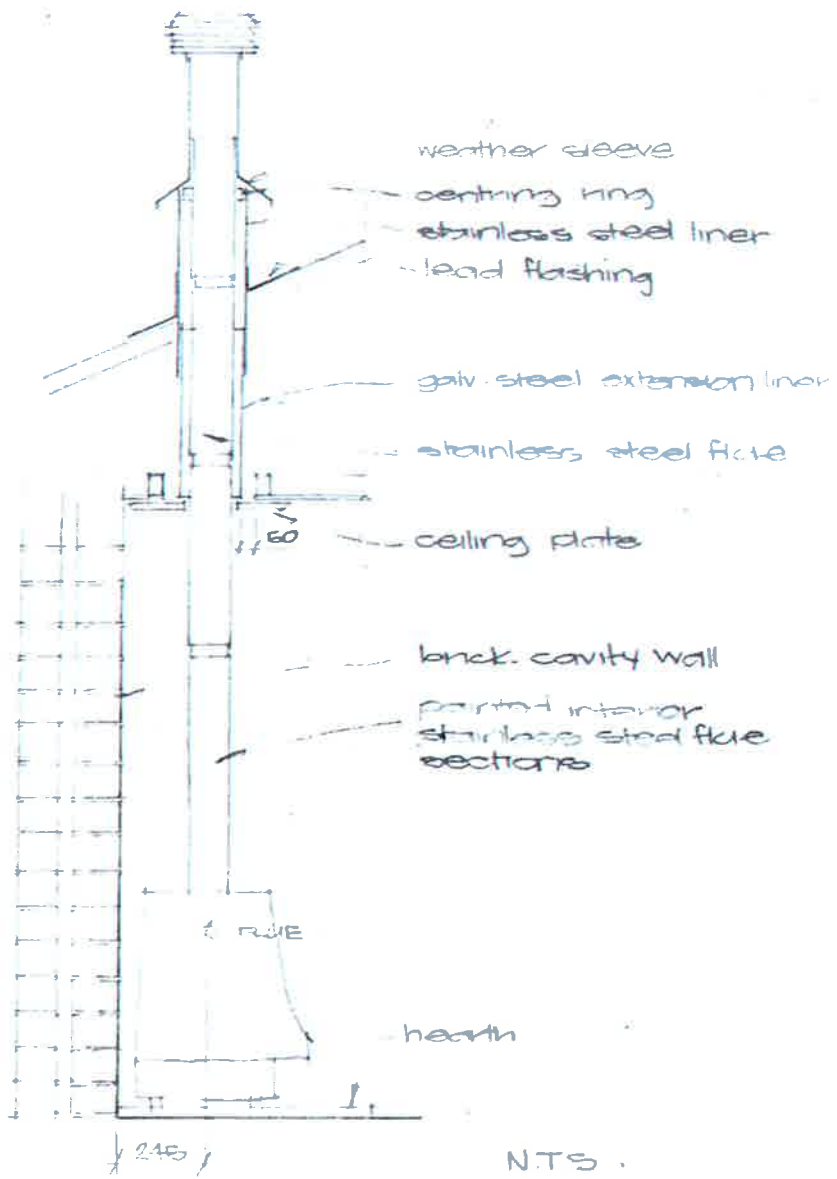 weather sleeve
centring ring
stainless steel liner
lead flashing
galv. steel extension liner
stainless steel flue
50
ceiling plate
brick cavity wall
painted interior
stainless steel flue
sections
℄ FLUE
hearth
245
N.T.S.